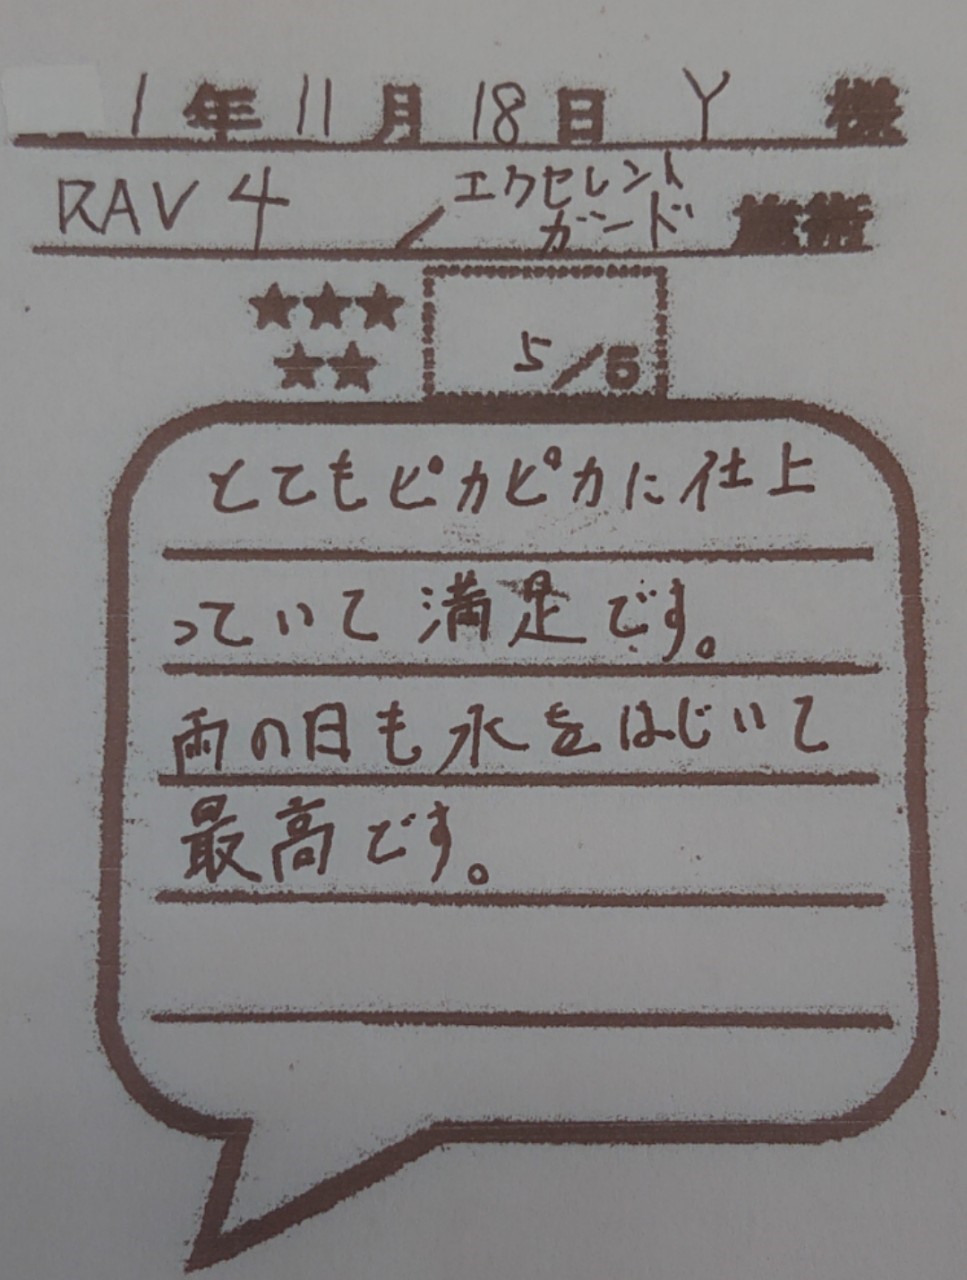 1年11月18日 Y 様
RAV4 / エクセレント
ガード 施術
★★★
★★
5/5
とてもピカピカに仕上
っていて満足です。
雨の日も水をはじいて
最高です。